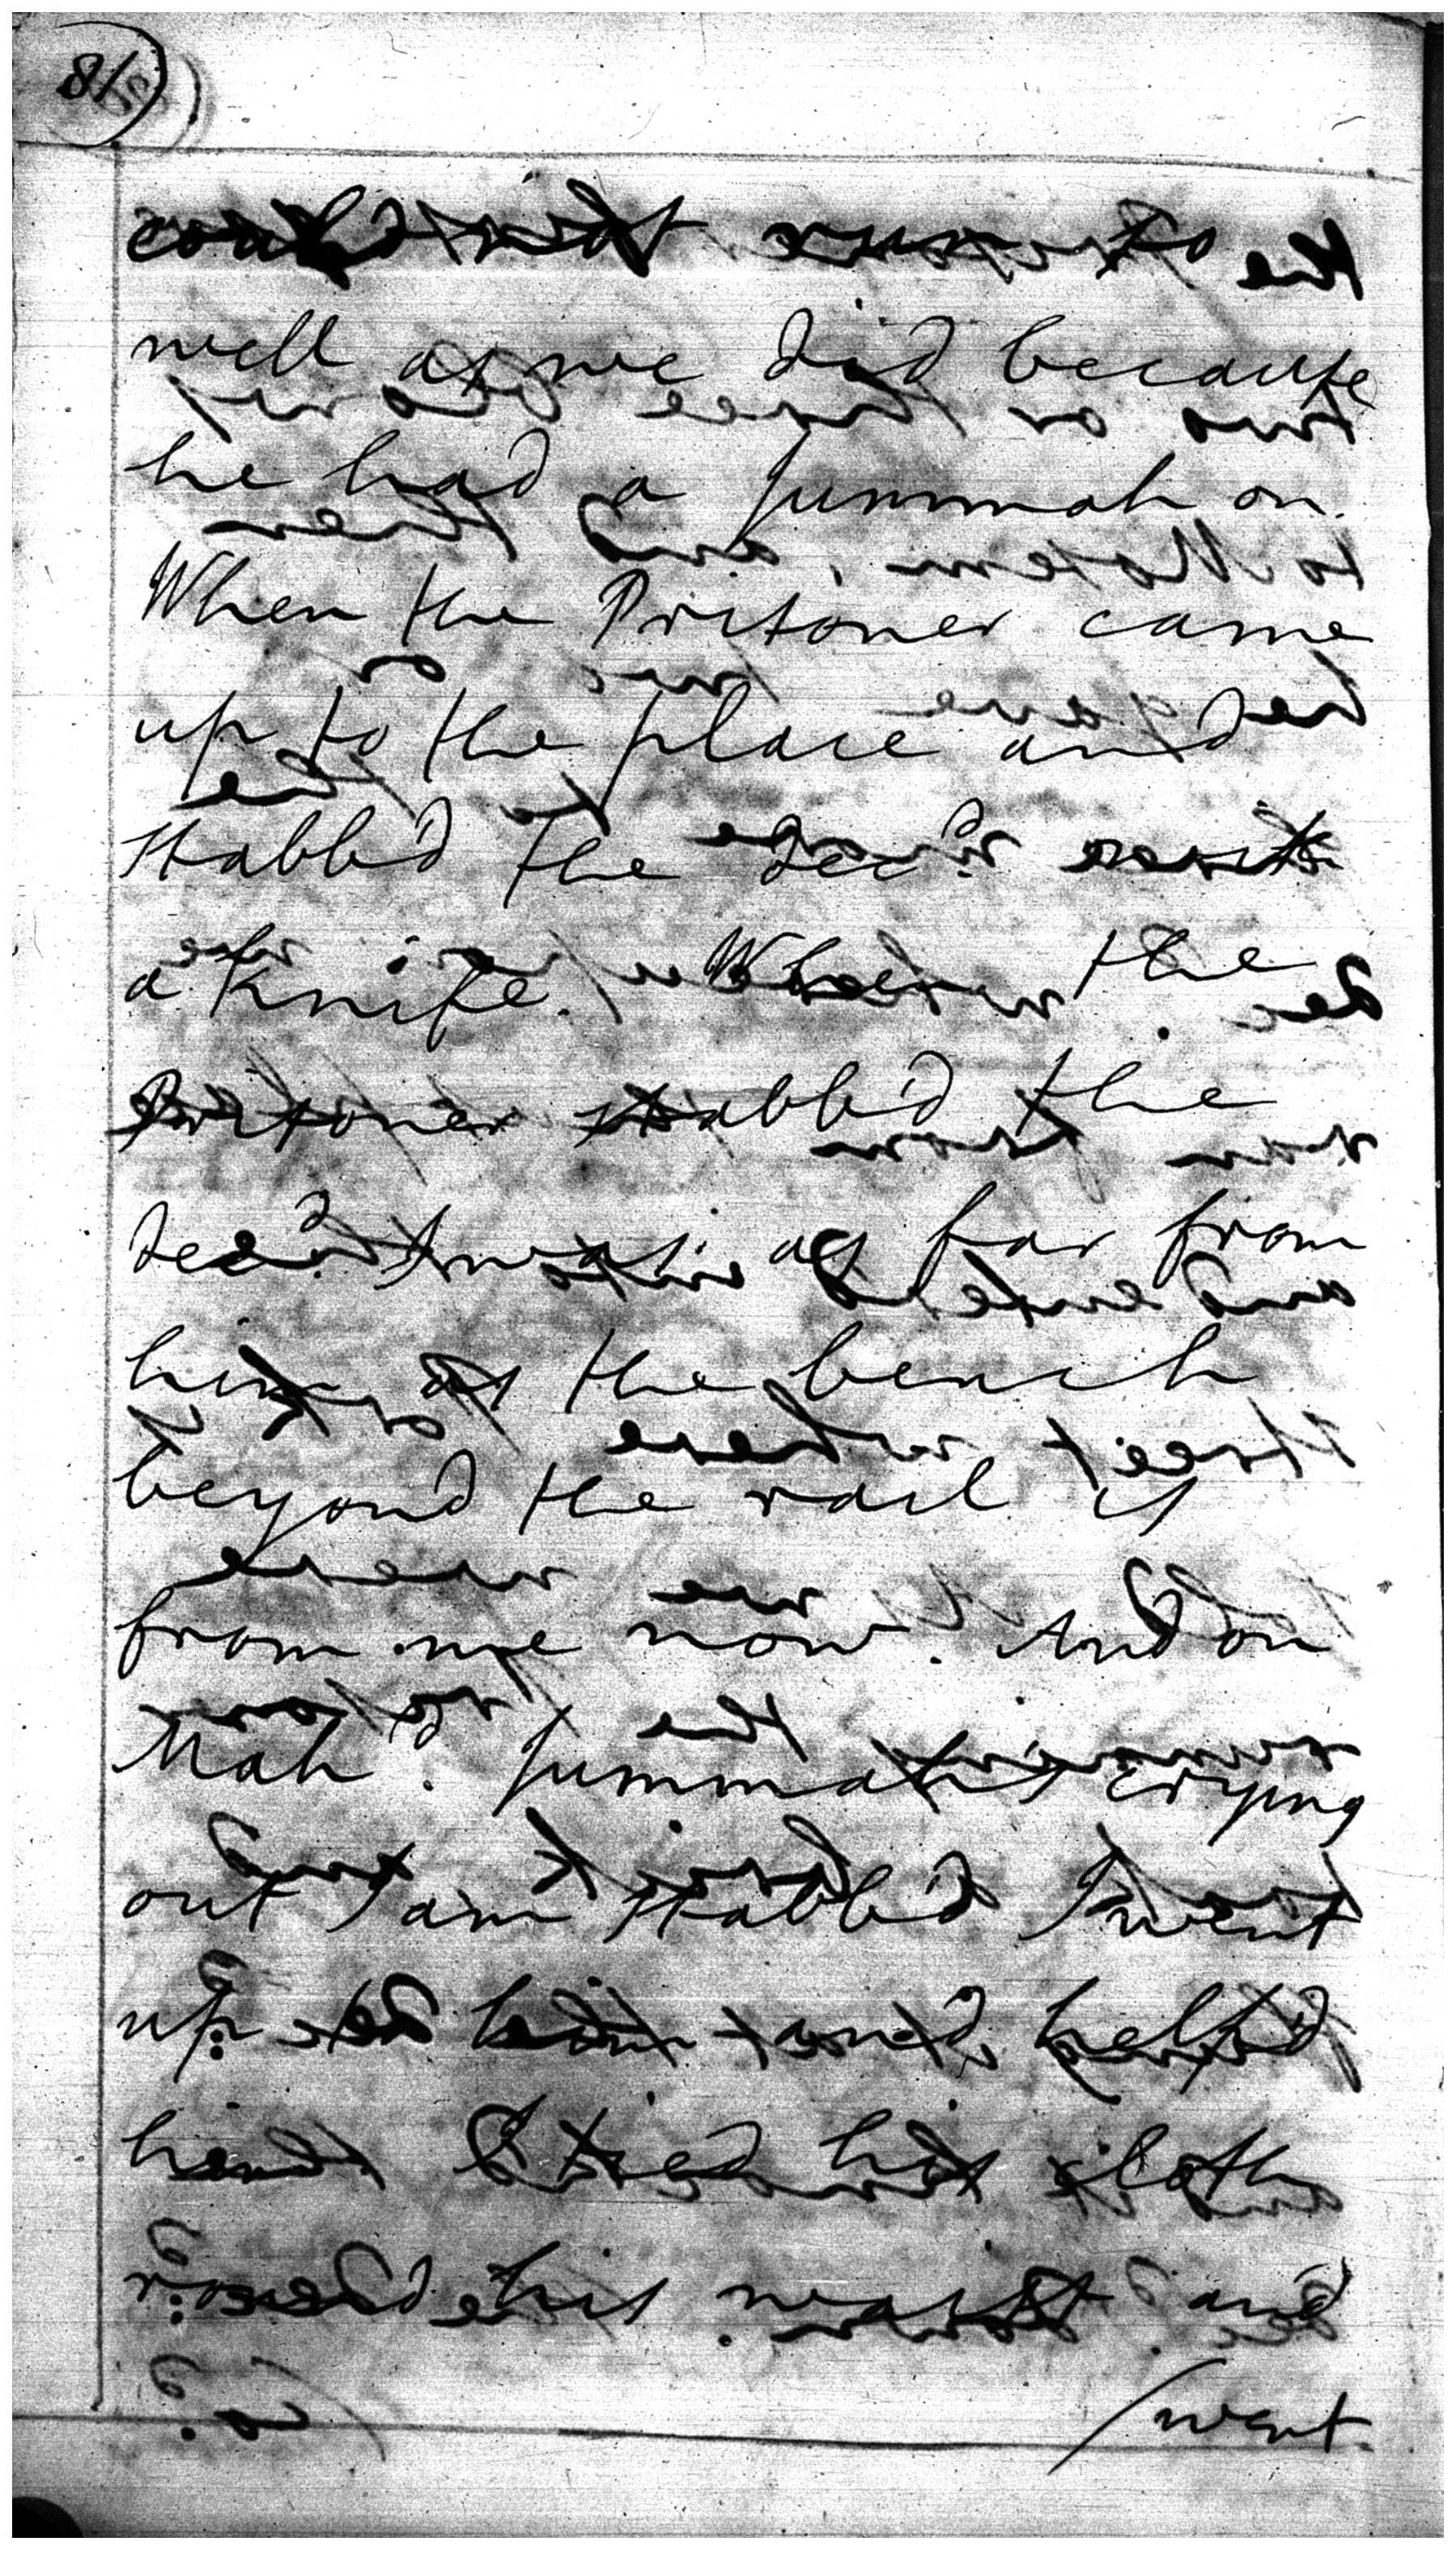 81)
could not run so
well as we did because
he had a Jummah on.
When the Prisoner came
up to the place and
stabb'd the Decd. with
a Knife. When the
Prisoner stabb'd the
Decd. I was as far from
him as the bench
beyond the rail is
from me now. And on
Mahd. Jummah's crying
out I am stabb'd I went
up to him and help'd
him I tied his cloth
round his waist and
/went